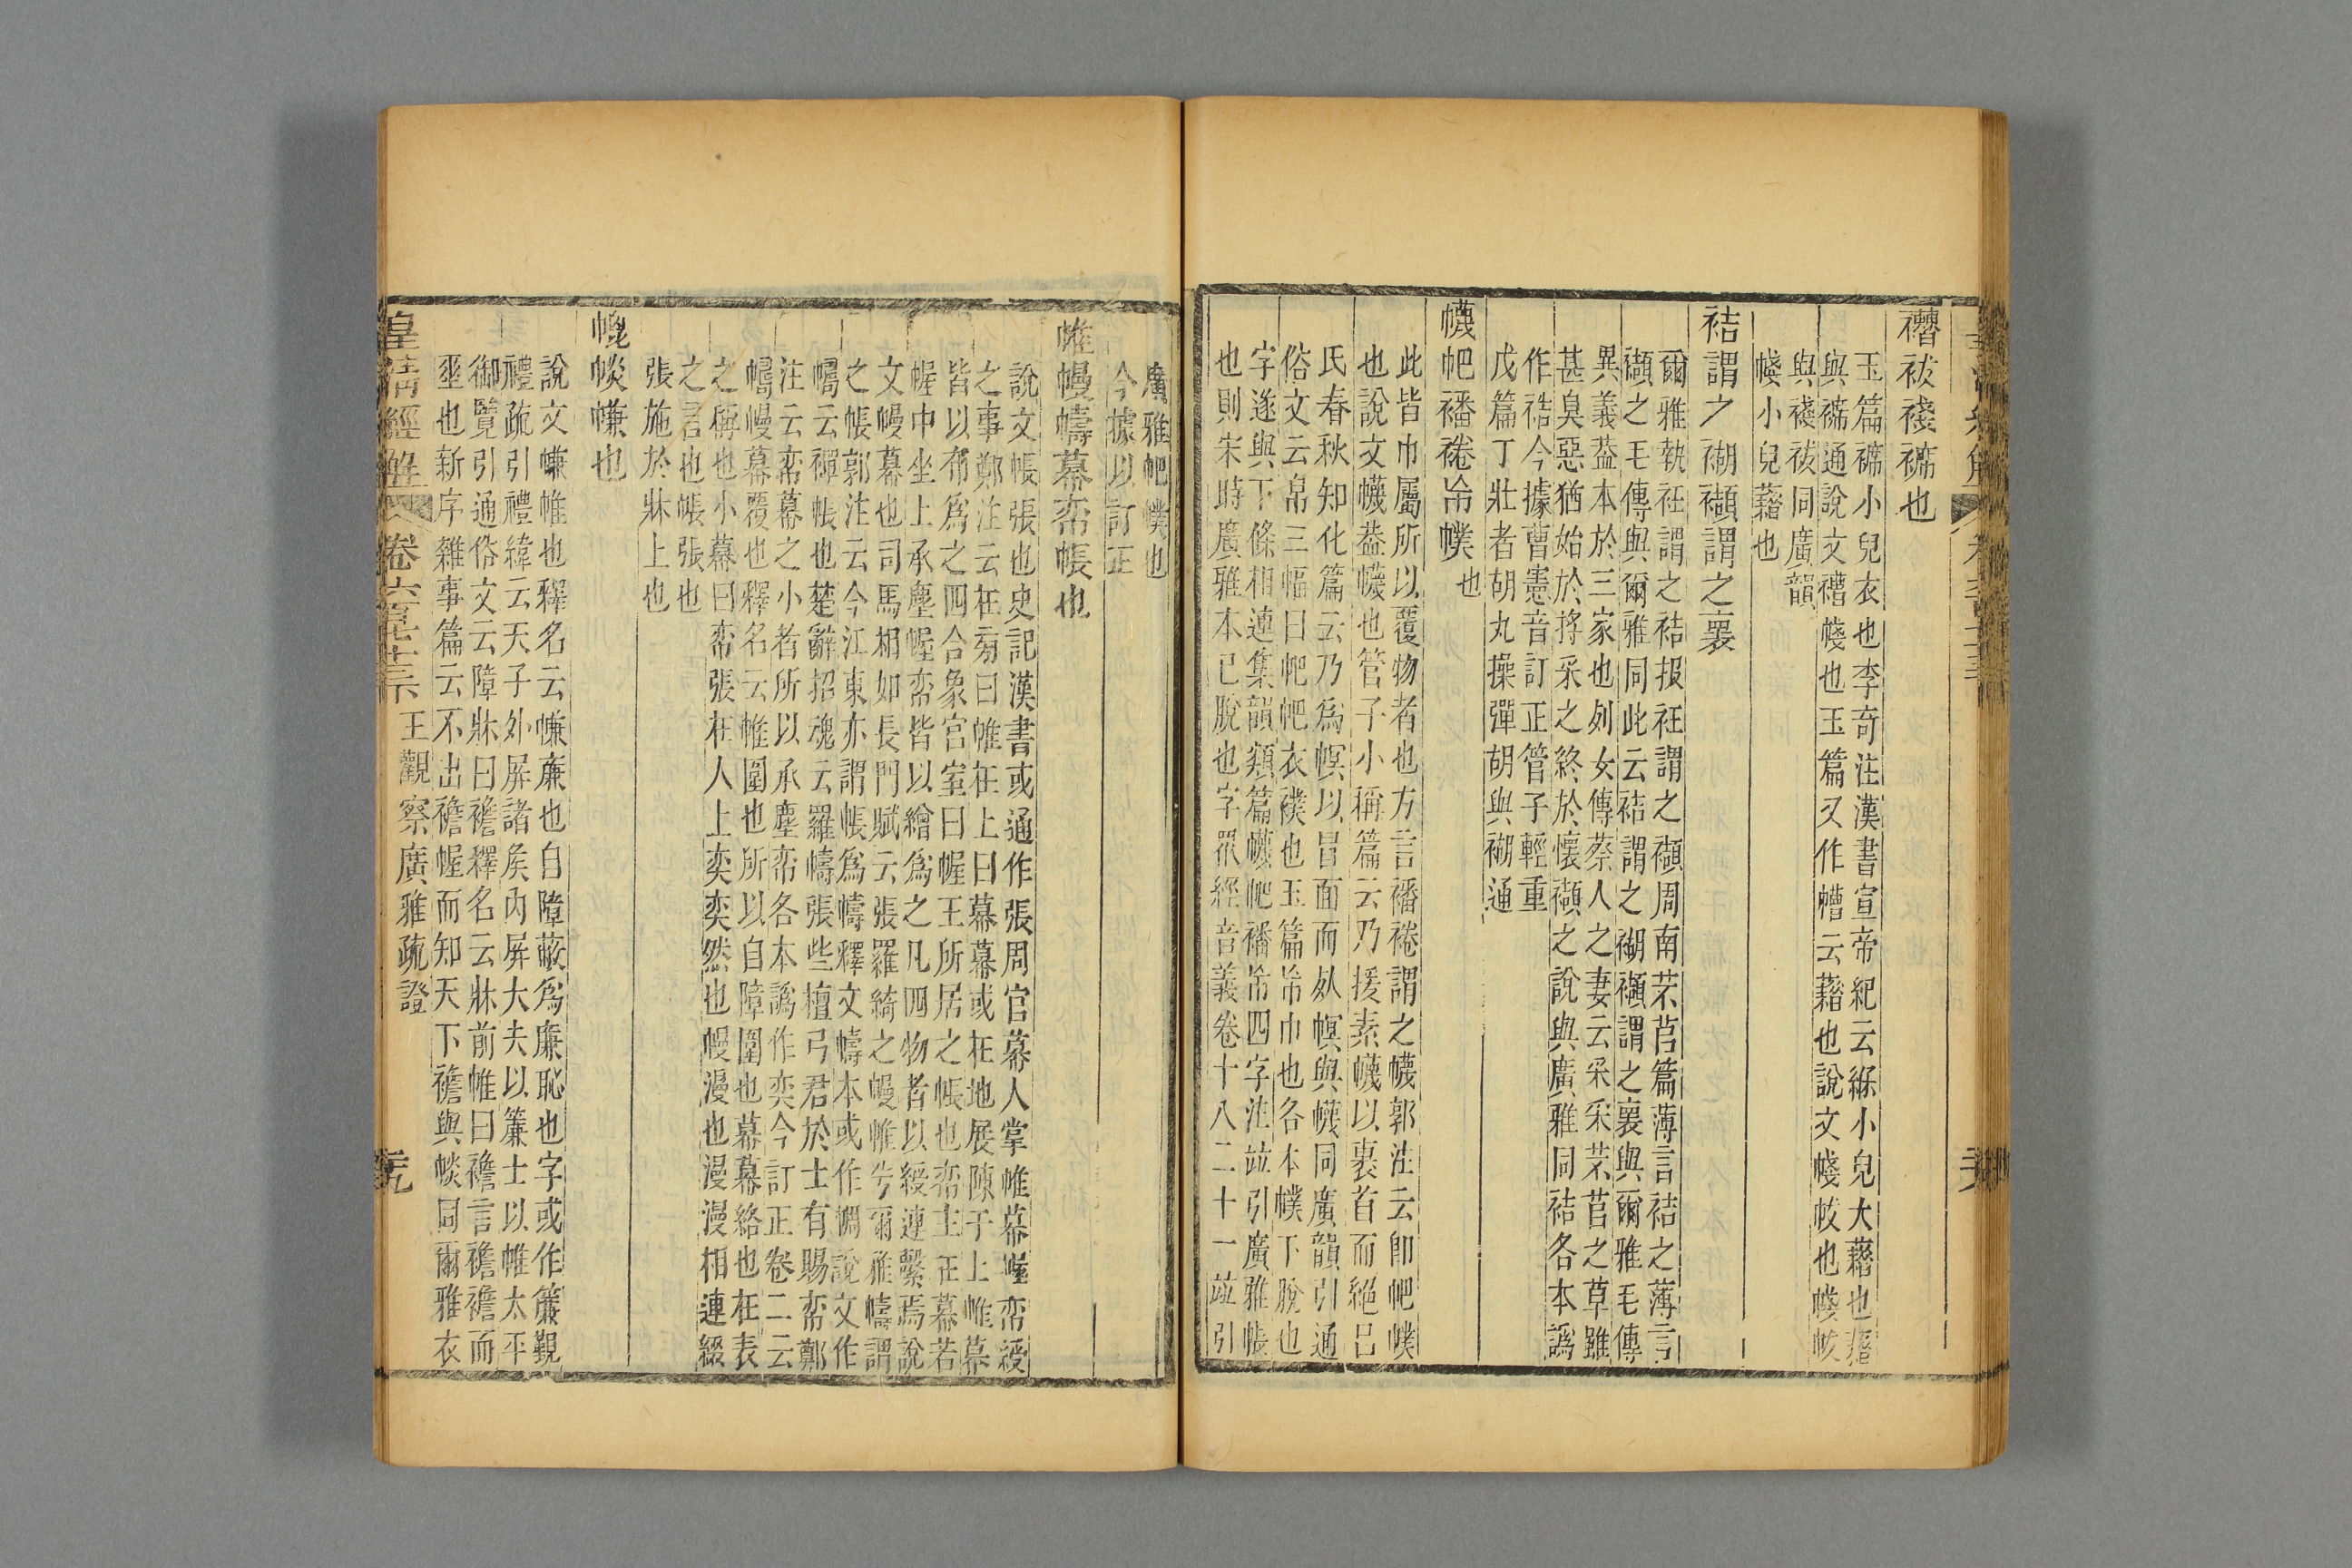 玉篇䙞小兒衣也李奇注漢書宣帝紀云緥小兒大藉也
幭小兒藉也
袺謂之襭謂之褱
爾雅執衽謂之袺扱衽謂之襭周南芣苢篇薄言袺之薄言
襭之毛傳與爾雅同此云袺謂之𧛞襭謂之褱與爾雅毛傳
異義葢本於三家也列女傳蔡人之妻云采采芣苢之草雖
甚臭惡猶始於捋采之終於懷襭之說與廣雅同袺各本譌
作祰今據曹憲音訂正管子輕重
戊篇丁壯者胡丸操彈胡與𧛞通
幭帊襎裷帒幞也
此皆巾屬所以覆物者也方言襎裷謂之幭郭注云卽帊幞
也說文幭葢幭也管子小稱篇云乃援素幭以裹首而絕呂
氏春秋知化篇云乃爲幎以冒面而死幎與幭同廣韻引通
俗文云帛三幅曰帊帊衣襆也玉篇帒帒巾也各本幞下脫也
字遂與下條相連集韻類篇幭帊襎帒四字注竝引廣雅帳
也則宋時廣雅本已脫也字眾經音義卷十八二十一竝引
廣雅帊幞也
今據以訂正
帷幔幬幕帟帳也
說文帳張也史記漢書或通作張周官幕人掌帷幕幄帟綬
之事鄭注云在旁曰帷在上曰幕幕或在地展陳于上帷幕
皆以布爲之四合象宮室曰幄王所居之帳也帟主在幕若
幄中坐上承塵幄帟皆以繒爲之凡四物者以綬連繫焉說
文幔幕也司馬相如長門賦云張羅綺之幔帷兮爾雅幬謂
之帳郭注云今江東亦謂帳爲幬釋文幬本或作㡡說文作
㡡云襌帳也楚辭招魂云羅幬張些檀弓君於士有賜帟鄭
注云帟幕之小者所以承塵帟各本譌作奕今訂正卷二云
㡡幔幕覆也釋名云帷圍也所以自障圍也幕幕絡也在表
之稱也小幕曰帟張在人上奕奕然也幔漫也漫漫相連綴
之言也帳張也
張施於牀上也
幌㡘㡘也
說文㡘帷也釋名云㡘廉也自障蔽爲廉恥也字或作簾覲
禮疏引禮緯云天子外屏諸矦內屏大夫以簾士以帷太平
御覽引通俗文云障牀曰襜釋名云牀前帷曰襜言襜襜而
垂也新序雜事篇云不出襜幄而知天下襜與㡘同爾雅衣
皇清經解 卷六百六十七下 王觀察廣雅疏證 元